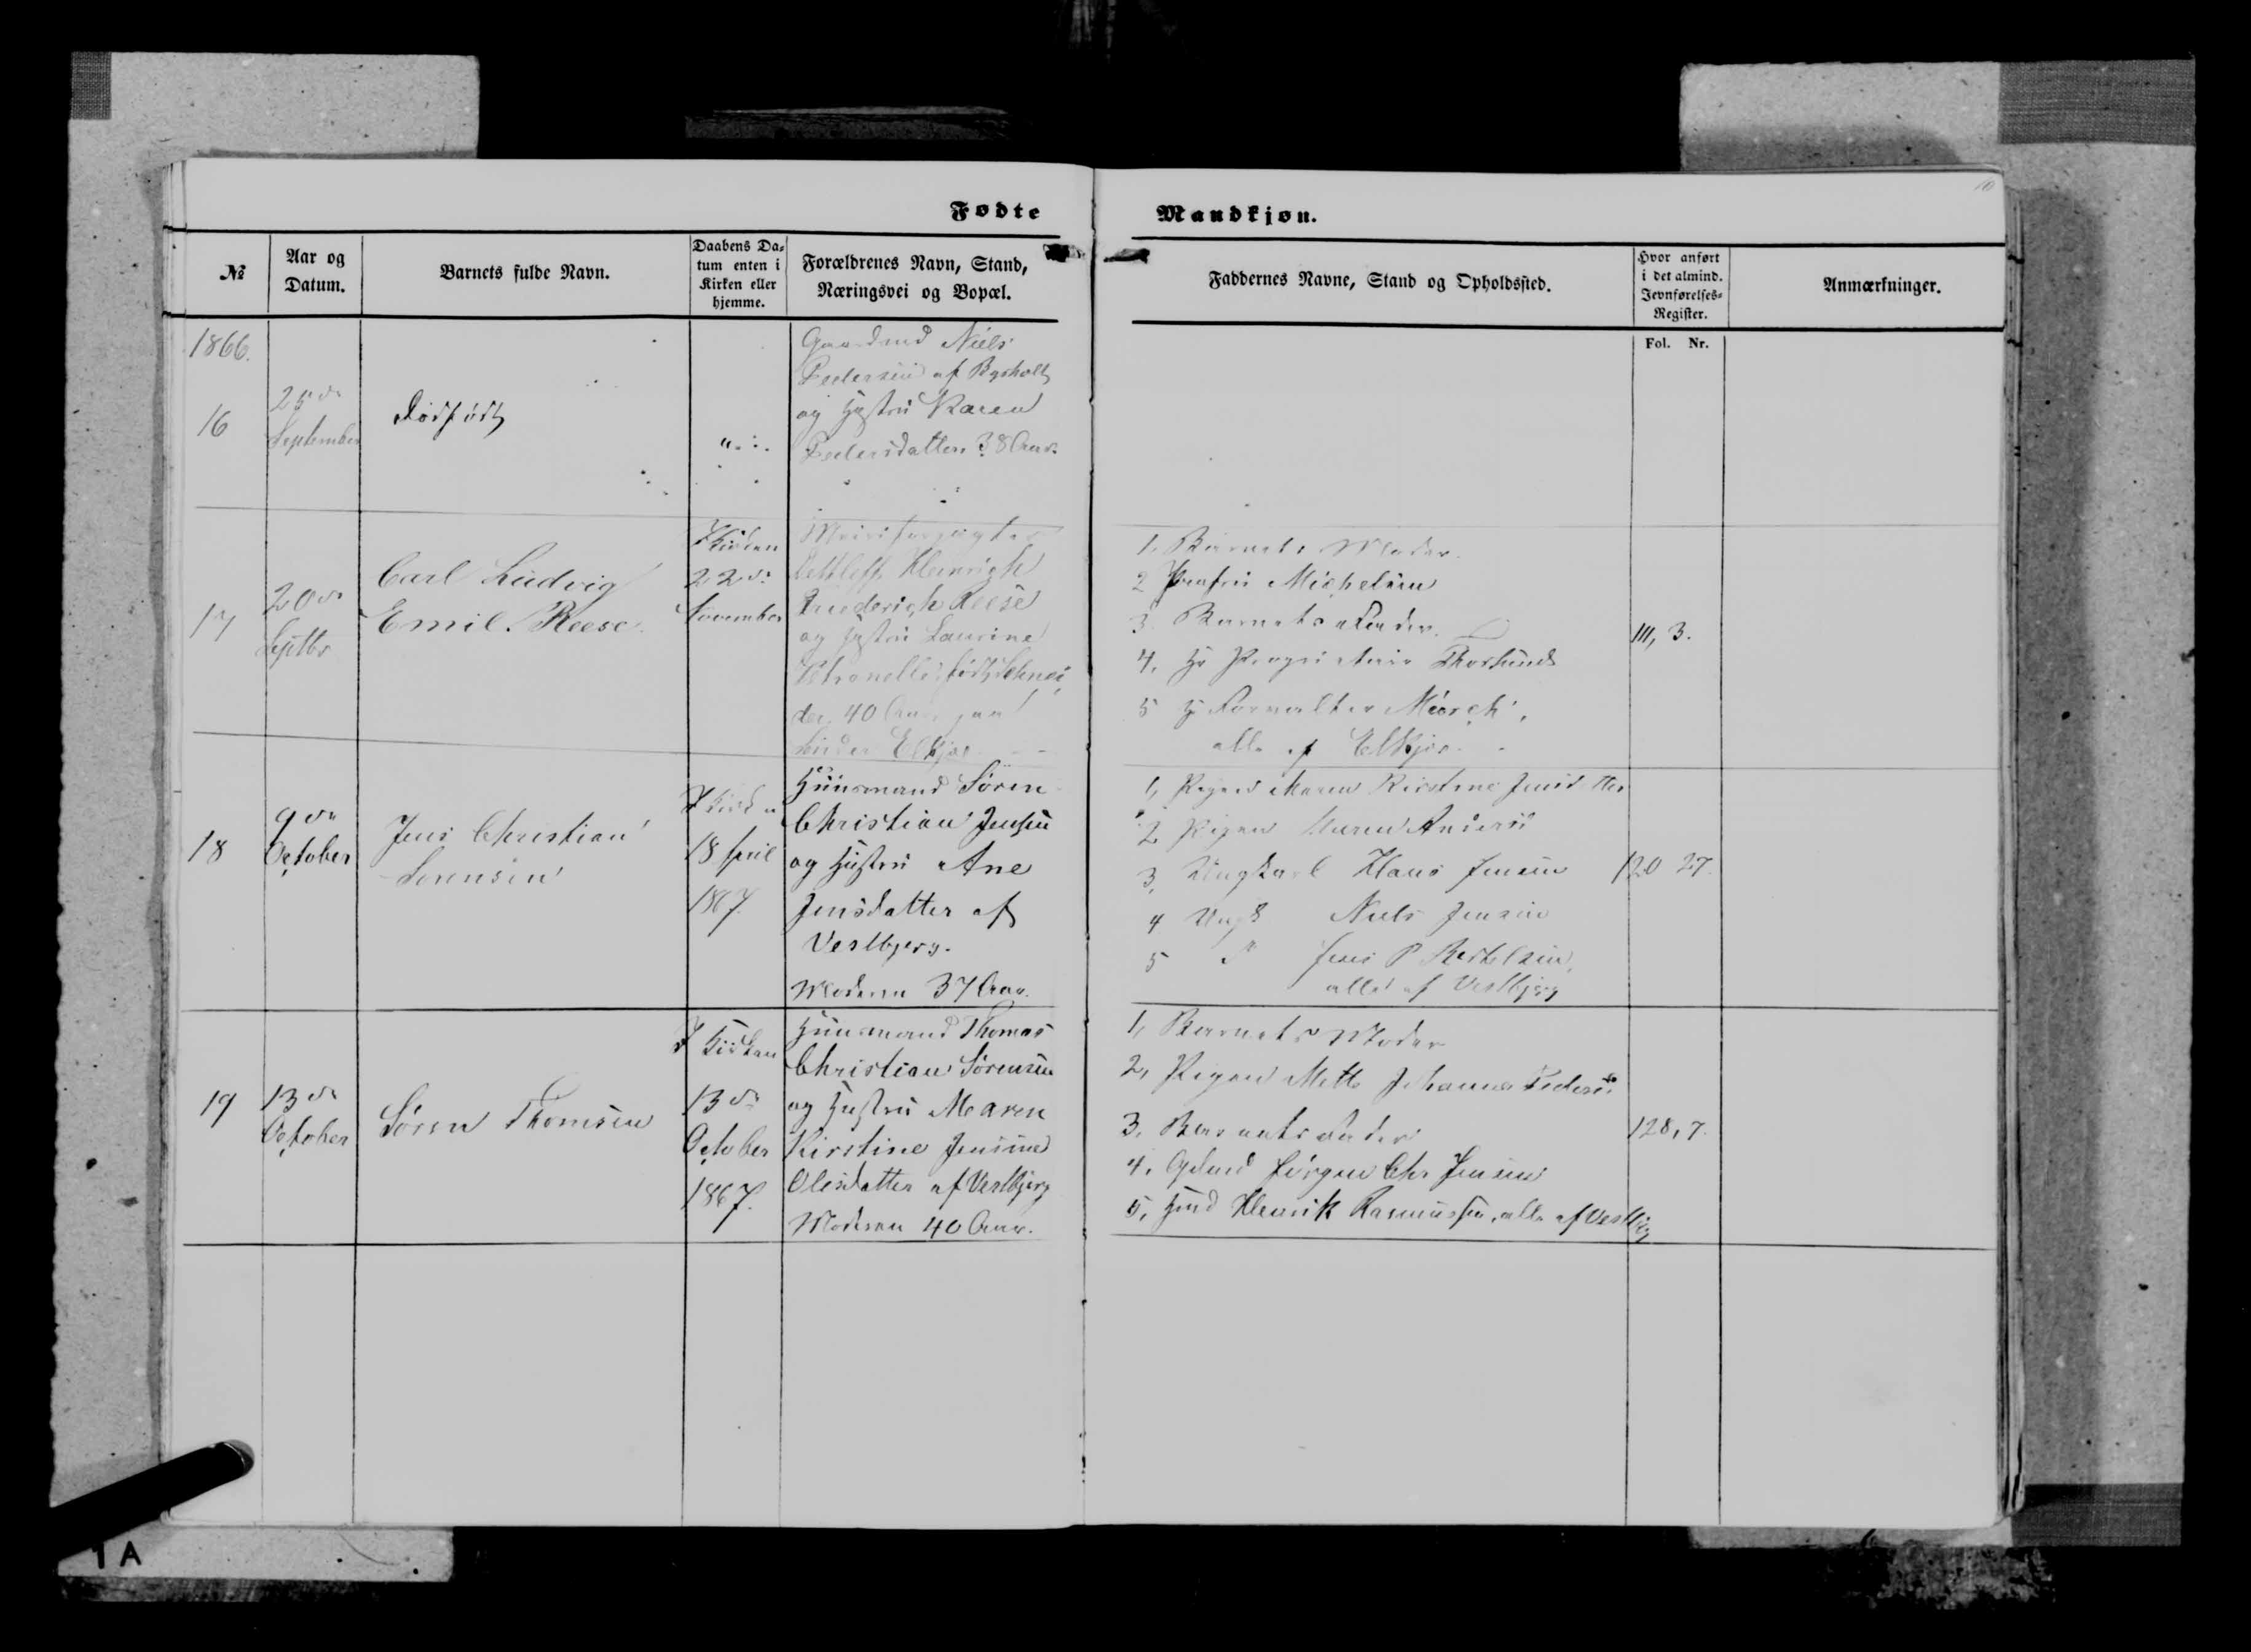 Fødte
Mandkjøn.
10
№
Aar og
Datum.
Barnets fulde Navn.
Daabens Da-
tum enten i
Kirken eller
hjemme.
Forældrenes Navn, Stand,
Næringsvei og Bopæl.
Faddernes Navne, Stand og Opholdssted.
Hvor anført
i det almind.
Jevnførelses-
Register.
Anmærkninger.
Fol. Nr.
1866.
16
25de
September
Dødfødt
Gaardmd Niels
Pedersen af Bysholt
og Hustru Karen
Pedersdatter 38 Aar.
17
20de
Septbr
Carl Ludvig
Emil Reese
I Kirken
22de
November
Meieriforpagter
Detleff Heinrich
Friederich Reese
og Hustru Laurine
Petronelle, født Schnei-
der. 40 Aar, paa
Elkjær
1. Barnets Moder.
2 Michelsen
3. Barnets Fader.
4. Hr Proprietair Thorlund
5 Hr Forvalter Mörch,
alle af Elkjær.
111, 3.
18
9de
October
Jens Christian
Sørensen
I Kirken
18 April
1867.
Huusmand Sören
Christian Jensen
og Hustru Ane
Jensdatter af
Vestbjerg.
Moderen 37 Aar.
1, Pigen Maren Kirstine Jensdtter
2 Pigen Maren Anders
3, Ungkarl Klaus Jensen
4 Ungk Niels Jensen
5 Jens P Bertelsen,
alle af Vestbjerg
120 27.
19
13de
October
Sören Thomsen
I Kirken
13de
October
1867.
Huusmand Thomas
Christian Sörensen
og Hustru Maren
Kirstine Jensine
Olesdatter af Vestbjerg
Moderen 40 Aar.
1, Barnets Moder
2, Pigen Mette Johanne Peders
3. Barnets Fader
4. Gdmd Jörgen Chr Jensen
5, Hmd Henrik Rasmussen, alle af Vestbjerg
128, 7.
1 A